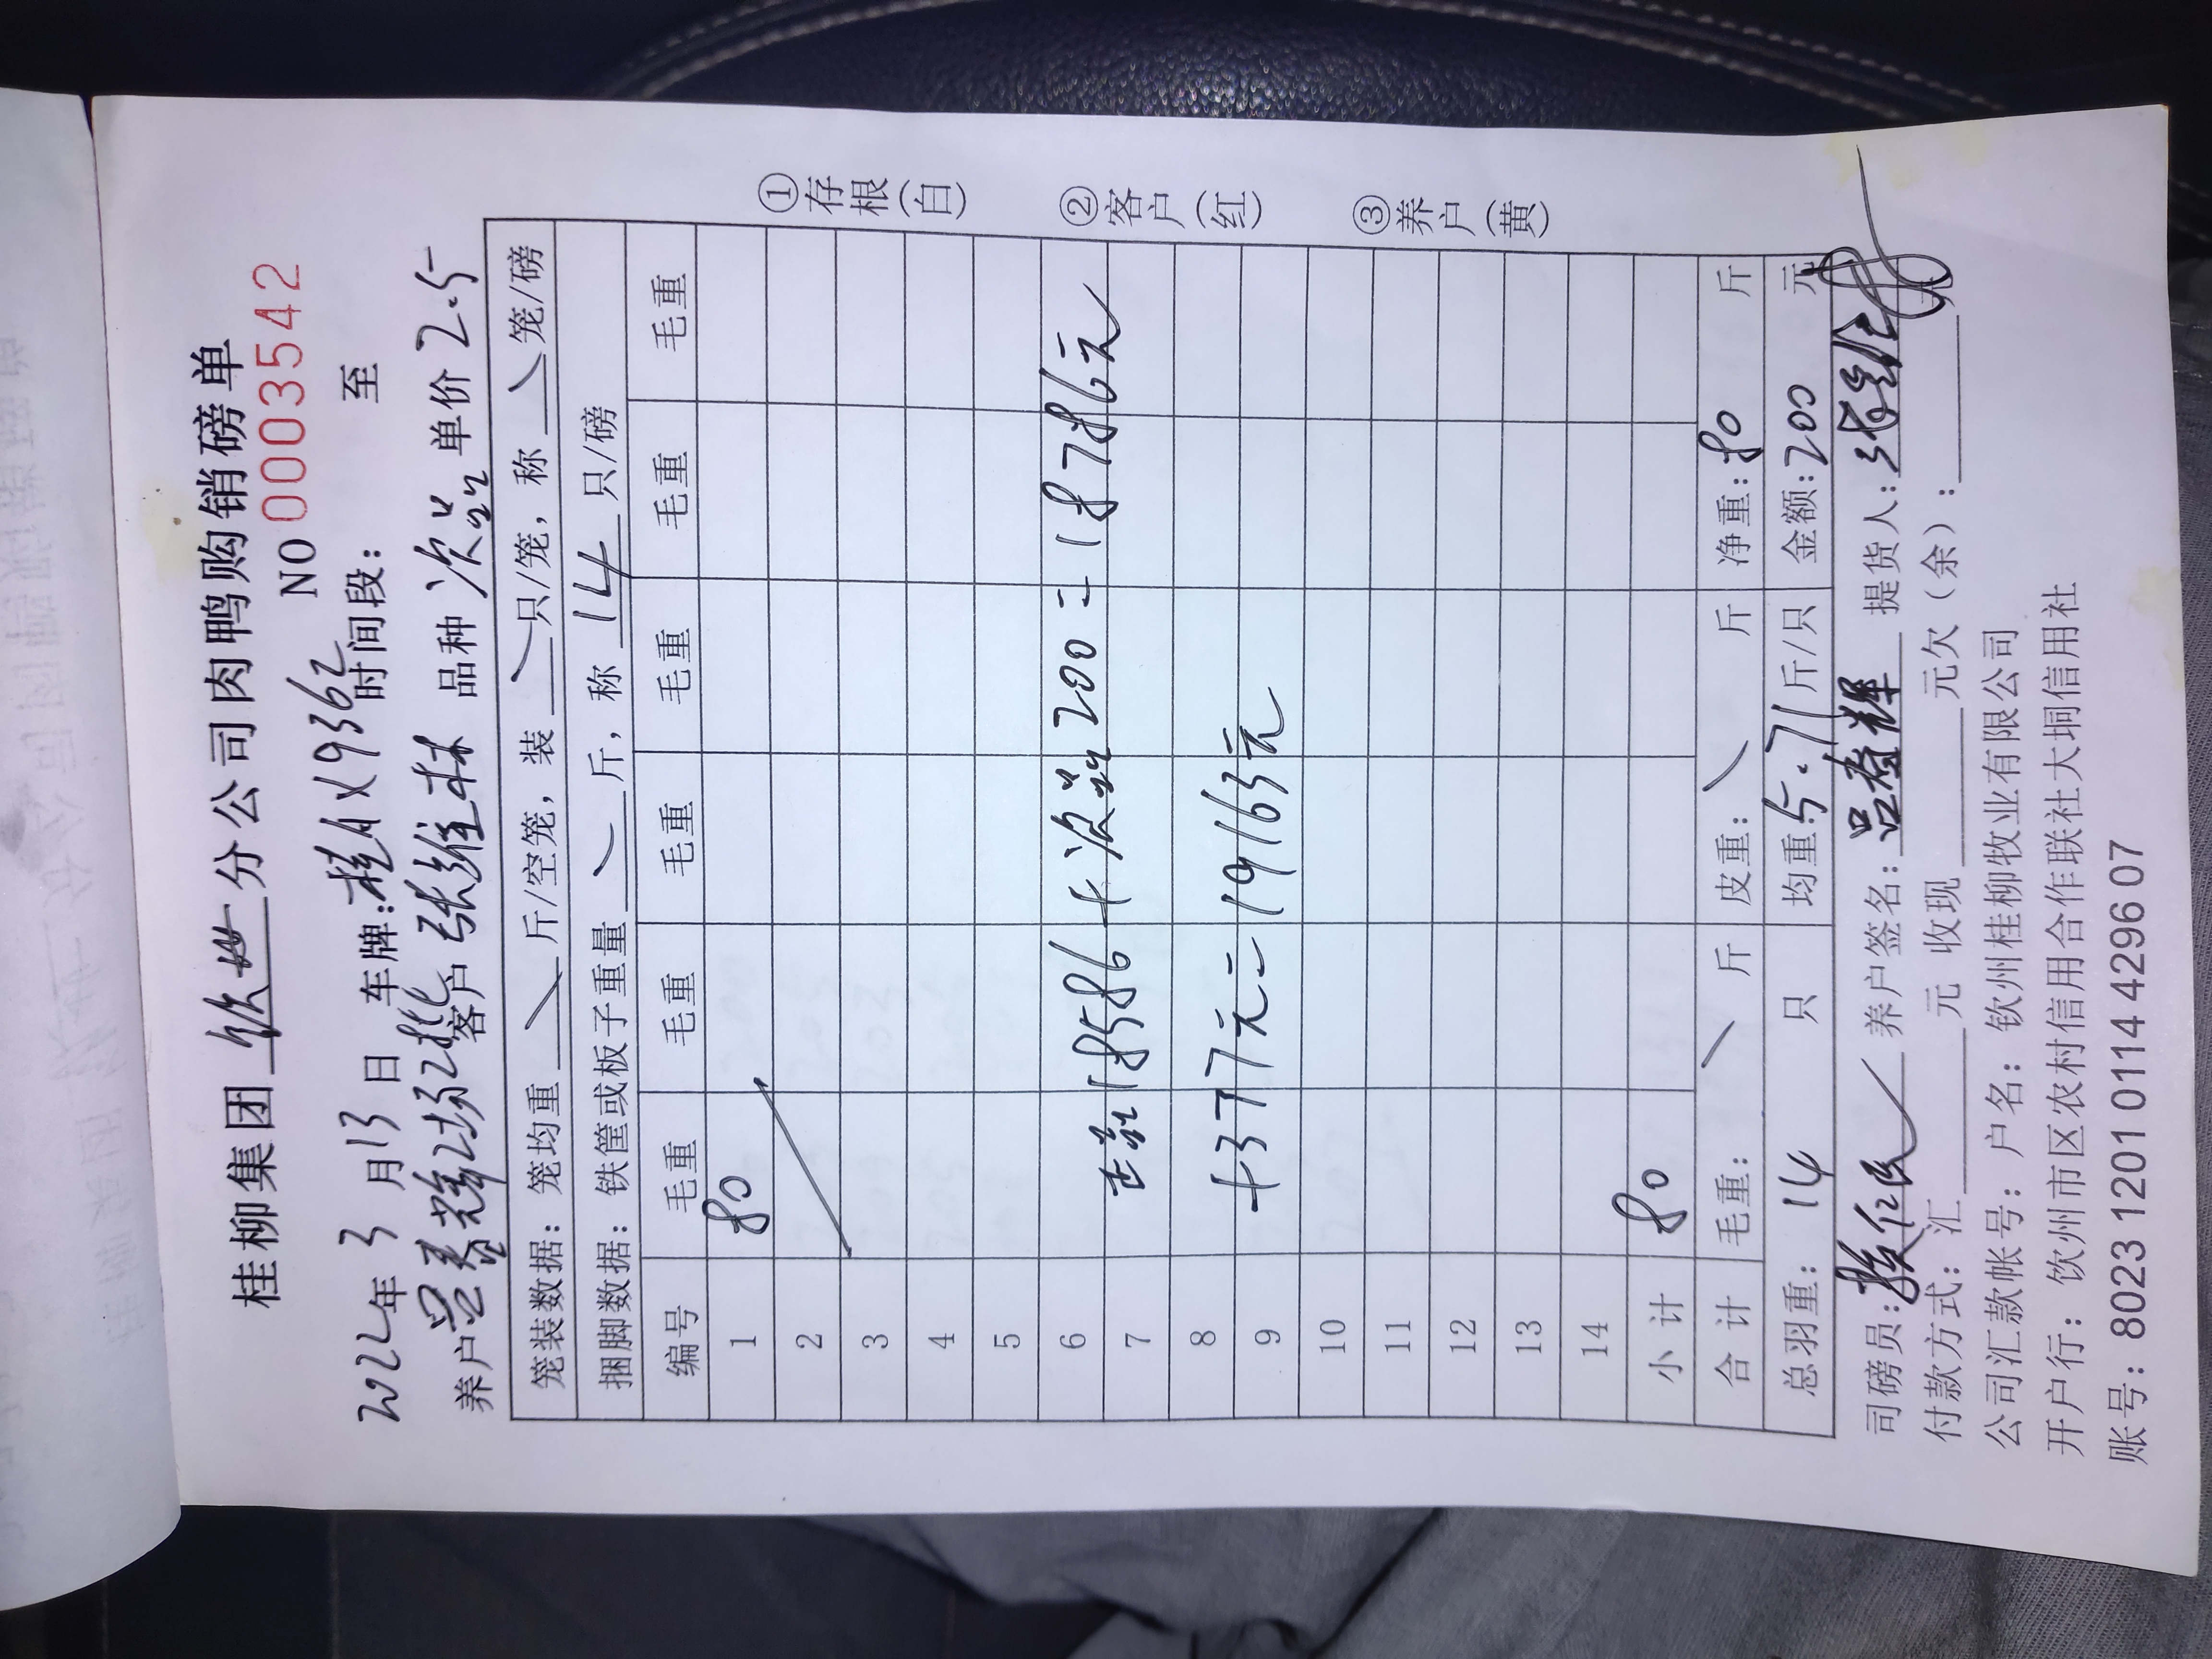 桂柳集团 钦州 分公司肉鸭购销磅单
NO 0003542
2022年 3 月 13 日 车牌:桂AX9362 时间段: 至
养户 吕春辉2场2批 客户 张维林 品种 次品 单价 2.5
笼装数据: 笼均重 斤/空笼, 装 只/笼, 称 笼/磅
捆脚数据: 铁筐或板子重量 斤, 称 14 只/磅
编号 毛重 毛重 毛重 毛重 毛重 毛重
1 80
2
3
4
5
6
正品 18586 + 次品 200 = 18786元
7
8
+377元 = 19163元
9
10
11
12
13
14
小计 80
合计 毛重: 斤 皮重: 斤 净重: 80 斤
总羽重: 14 只 均重: 5.71 斤/只 金额: 200 元
司磅员: 养户签名: 吕春辉 提货人:
付款方式: 汇 元 收现 元欠(余):
公司汇款帐号: 户名: 钦州桂柳牧业有限公司
开户行: 钦州市区农村信用合作联社大垌信用社
账号: 8023 1201 0114 4296 07
①存根(白)
②客户(红)
③养户(黄)